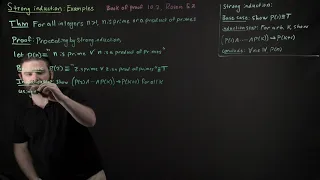 Strong induction: Examples Book of proof 10.2, Rosen 5.2
Thm For all integers n>1, n is prime or a product of primes
Proof: Proceeding by strong induction,
let P(n) = "n is prime ∨ n is a product of primes"
P(2) = "2 is prime ∨ 2 is a product of primes" ≡ T
show (P(2)∧⋯∧P(k))→P(k+1) for all k
Strong induction:
Base case: Show P(1)≡T
induction step: For arb. k, show
P(1)∧⋯∧P(k))→P(k+1)
conclude: ∀n P(n)